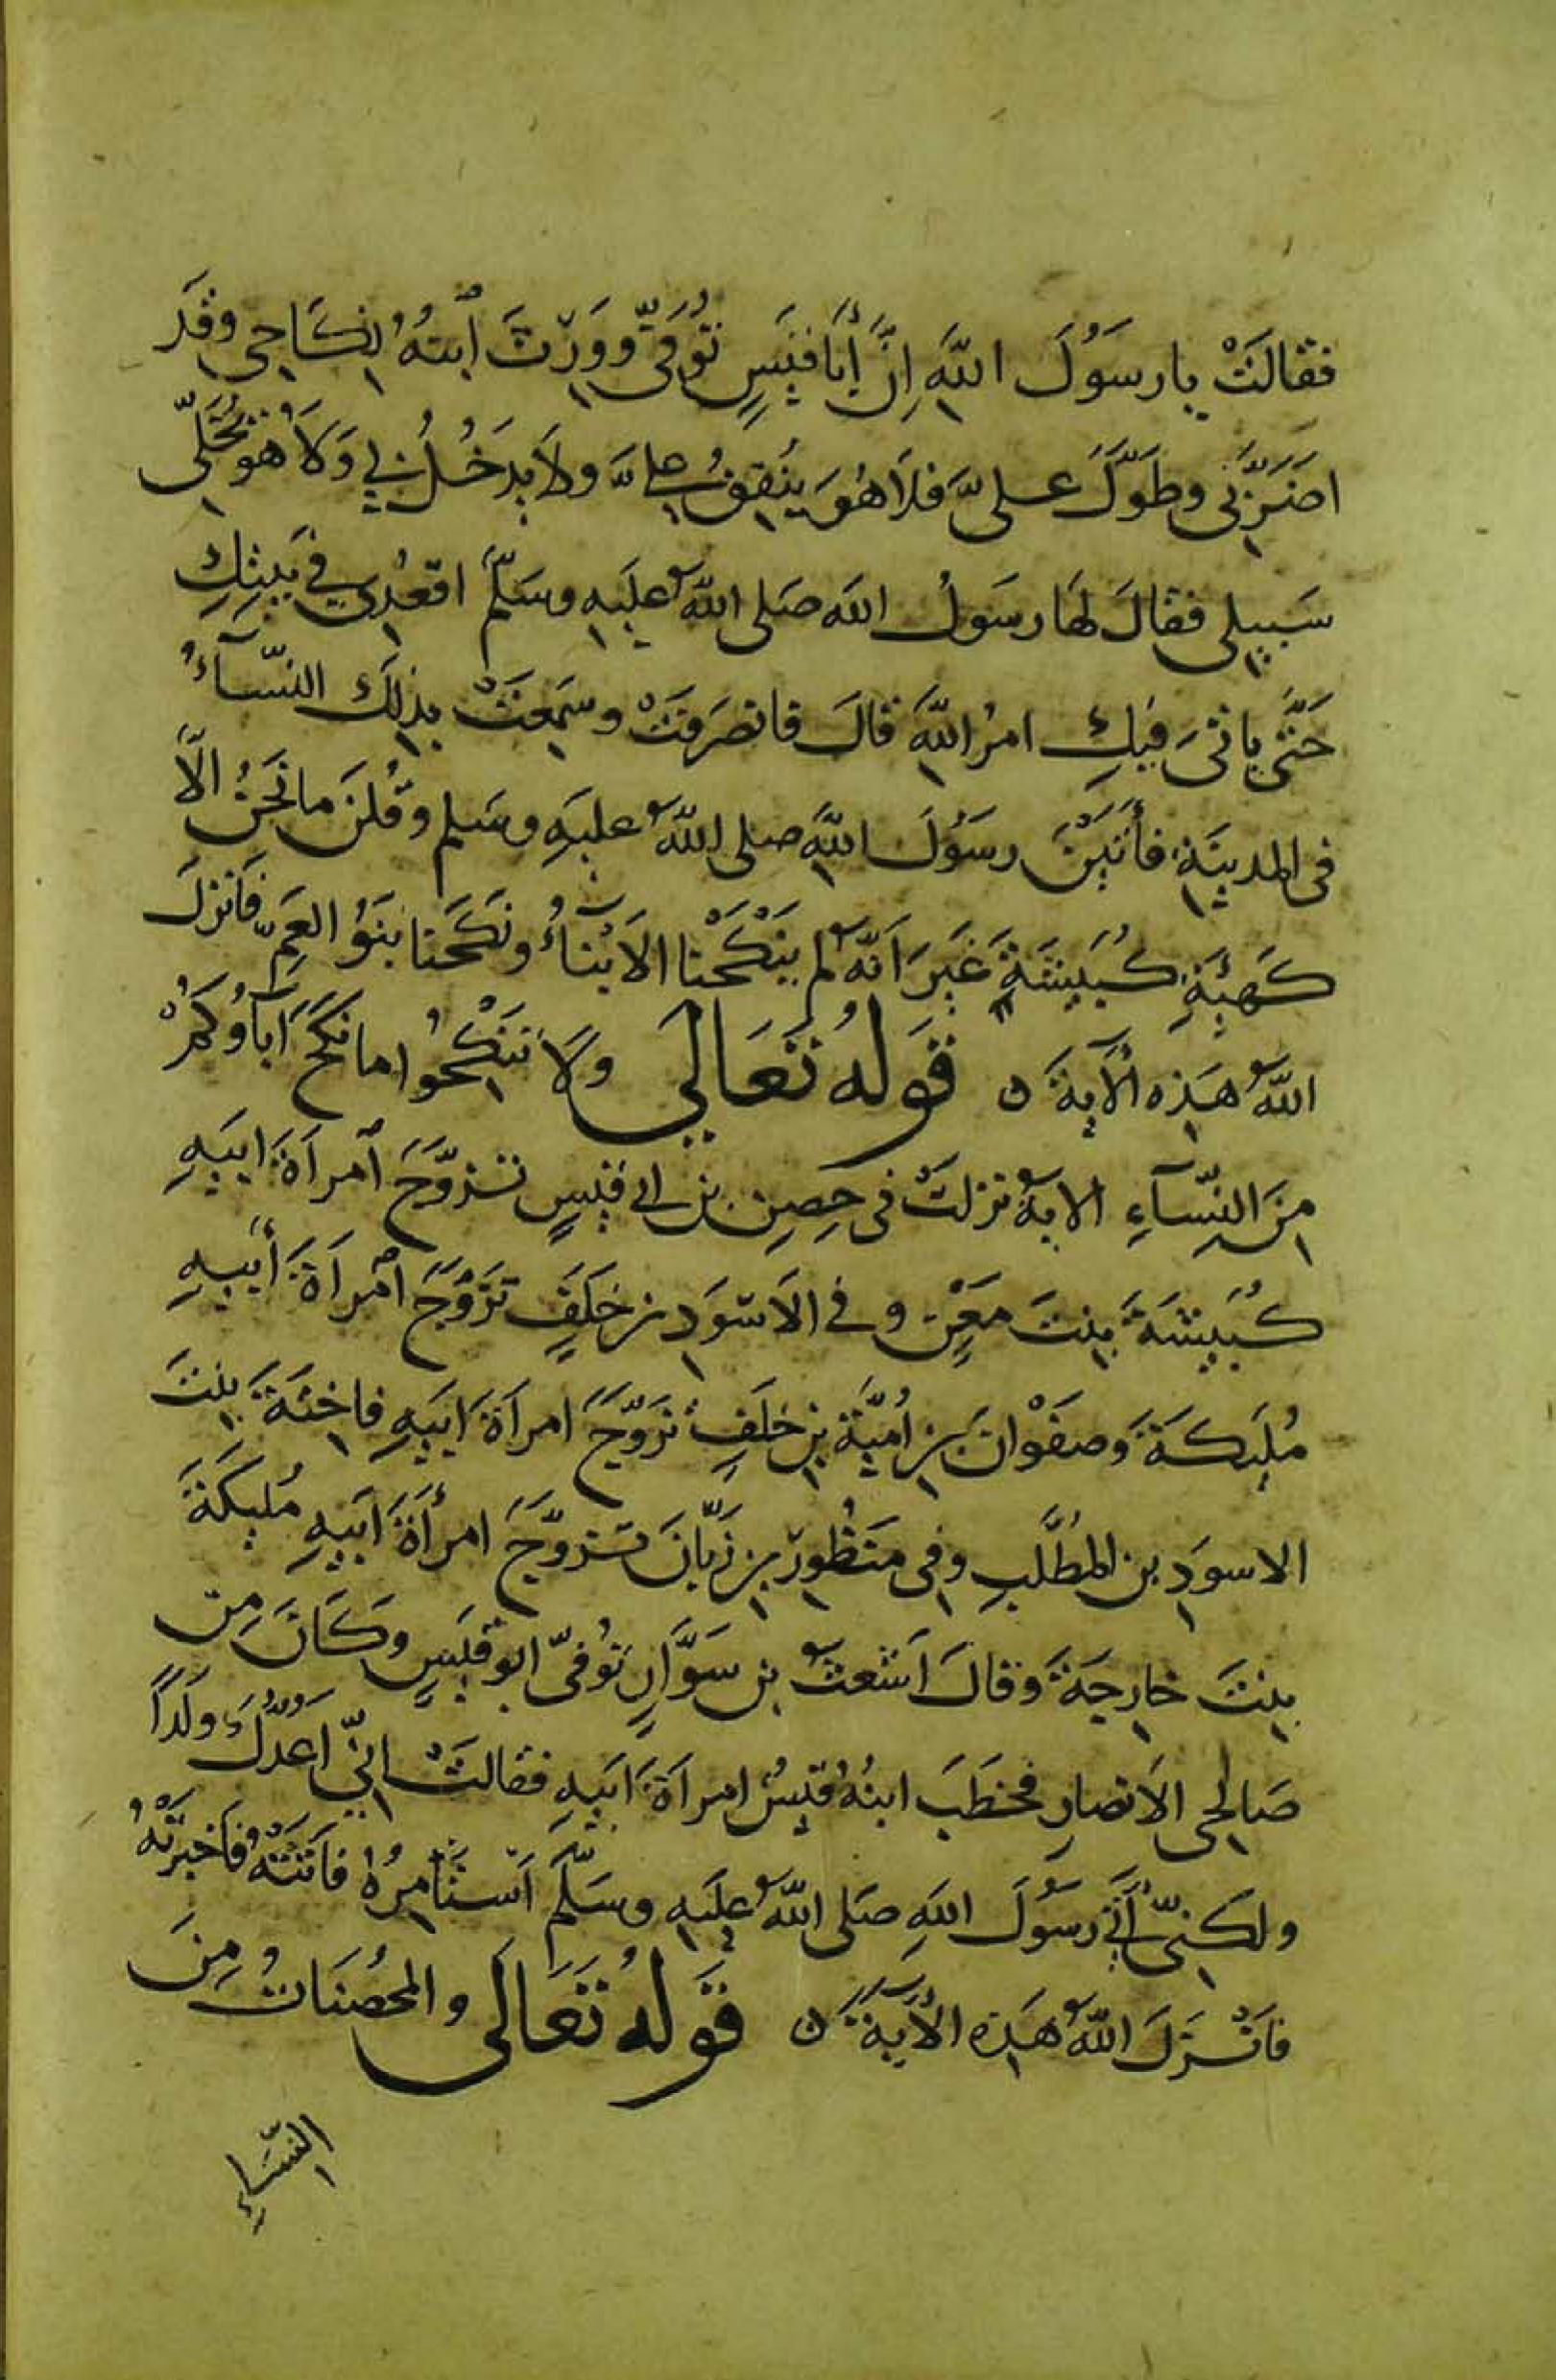 فقالَتْ يا رسَوُلَ اللهِ اِنَّ أَبَا قَيسٍ تُوُفِّىَ وَوَرِثَ ابنُهُ نِكَاحِى وقَد
اضَرَّ بِى وطَوَّلَ علىَّ فلاَ هُوَ يُنفِقُ علىَّ ولاَ يدخُلُ بِي وَلاَ هُوَ يُخَلِّى
سَبيلِى فقالَ لهَا رسَولُ اللهِ صَلى اللهُ عليهِ وسَلّمَ اقعُدِى فِي بَيتِكِ
حَتَّى يا تىَ فيكِ امرُ اللهِ قالَ فانصَرفَتْ وسَمِعَتْ بذلِكَ النِّسآءُ
فى المدينَةِ فأَتَيْنَ رسَوُلَ اللهِ صلى اللهُ عليهِ وسَلم وقُلنَ ما نَحنُ الاَّ
كَهيئَةِ كُبَيشَةَ غَيرَ اَنَّهُ لم يَنكَحْنا الاَبْناءُ ونَكَحَنا بَنوُ العَمِّ فَانزلَ
اللهُ هَذِه الآيةَ ن قَولُهُ تَعَالَى ولاَ تَنكحُوا ما نكَحَ آبَآؤُكمُ
مِنَ النِّسآءِ الايةُ نزلَتْ فى حِصنِ بن ابى قَيسٍ تزوَّجَ امراَةَ ابيَهِ
كُبَيشَةَ بنتَ مَعْنٍ وفى الاَسوَدِ بن خَلَفٍ تزَوَّجَ امراَةَ أَبيهِ
مُلَيكَةَ وَصفَوْانَ بن اُمَيَّةَ بنِ خلَفٍ تَزوّجَ امراَةَ ابَيهِ فاخِتَةَ بِنتَ
الاسوَدِ بن المطَّلبِ وفى مَنظُورِ بنِ زَبَّانَ تَزوَّجَ امرأَةَ ابَيهِ مُلَيكَةَ
بِنتَ خارِجَةَ وَقالَ اَشعثُ بن سَوَّارٍ تُوُفىّ ابو قَيسٍ وَكَانَ مِن
صَالِحى الاَنصارِ فخَطَبَ ابنُهُ قَيسُ امراَةَ ابَيهِ فقالَتْ اِنّي اَعُدُّكَ ولَداً
ولكَنِىّ آتي رسَوُلَ اللهِ صَلى اللهُ عليَهِ وسَلَّمَ اَستَأمِرُهُ فاَتَتْهُ فاَخبرَتْهُ
فاَنْزَلَ اللهُ هَذِه الأيَةَ ن قَولُهُ تَعَالَى والمحُصَنَاتُ مِنَ
النِّسَاءِ